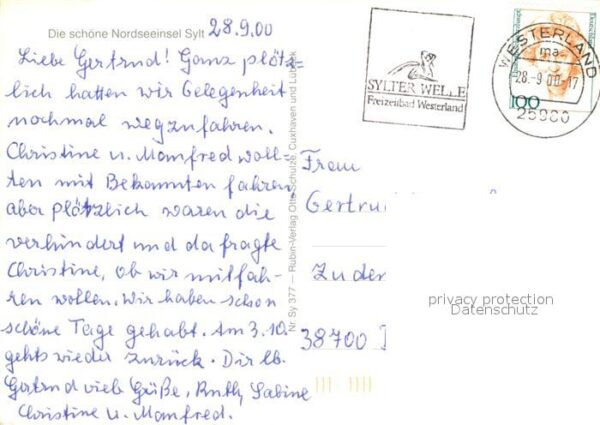 Die schöne Nordseeinsel Sylt
28.9.00
Liebe Gertrud! Ganz plötz-
lich hatten wir Gelegenheit
nochmal wegzufahren.
Christine u. Manfred woll-
ten mit Bekannten fahren
aber plötzlich waren die
verhindert und da fragte
Christine, ob wir mitfah-
ren wollen. Wir haben schon
schöne Tage gehabt. Am 3.10.
gehts wieder zurück. Dir lb.
Gertrud viele Grüße, Ruth, Sabine
Christine u. Manfred.
Nr. Sy 377 — Rubin-Verlag Otto Schulze, Cuxhaven und Lübeck
SYLTER WELLE
Freizeitbad Westerland
WESTERLAND
ma
28.-9.00-17
25980
100
Frau
Gertru
Zu den
38700
privacy protection
Datenschutz